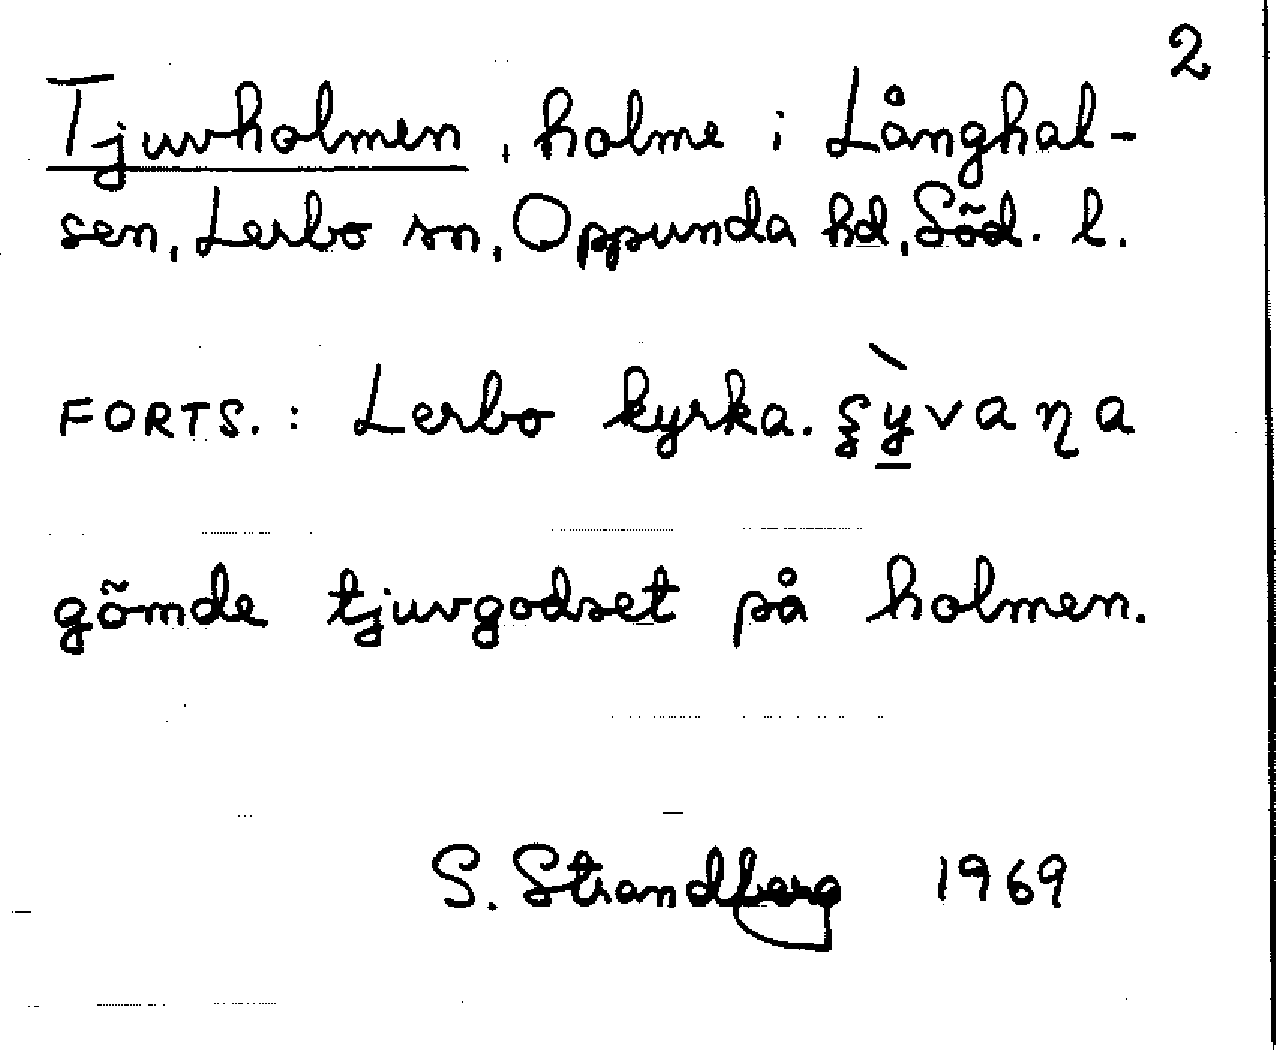 2
Tjuvholmen, holme i Långhal-
sen, Lerbo sn, Oppunda hd, Söd. l.
FORTS.: Lerbo kyrka. ʂỳvaɳa
gömde tjuvgodset på holmen.
S. Strandberg 1969